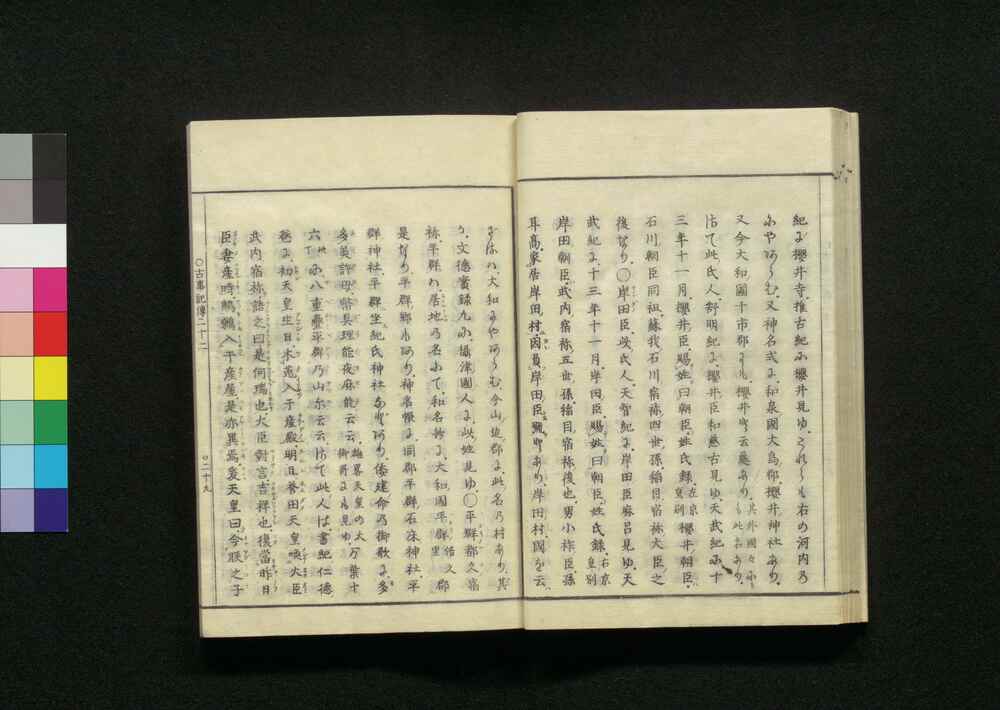 紀に櫻井寺、推古紀に櫻井見ゆ、これらも右の河内の
にやあらむ、又神名式に、和泉國大鳥郡櫻井神社あり、
又今大和國十市郡にも、櫻井と云處あり、其外國々にも此名あり、
さて此氏人、舒明紀に、櫻井臣和慈古見ゆ、天武紀に、十
三年十一月、櫻井臣、賜姓曰朝臣、姓氏錄、左京皇別櫻井朝臣、
石川朝臣同祖、蘇我石川宿祢四世孫、稲目宿祢大臣之
後なり、○岸田臣、此氏人、天智紀に、岸田臣麻呂見ゆ、天
武紀に、十三年十一月、岸田臣、賜姓曰朝臣、姓氏錄、右京皇別
岸田朝臣、武内宿祢五世孫、稲目宿祢後也、男小祚臣孫
耳高、家居岸田村、因負岸田臣號とあり、岸田村、國を云
ざるは、大和にやあらむ、今山邊郡に、此名の村あり、其
か、文德實錄九に、攝津國人に、此姓見ゆ、○平群都久宿
祢、平群は、居地の名にて、和名抄に、大和國平群、倍久郡
是なり、平群郷もあり、神名帳に、同郡平群石床神社、平
群神社、平群坐紀氏神社などあり、倭建命の御歌に、多
多美許母幣具理能夜麻能云云、雄畧天皇の大御哥にも見ゆ、万葉十
六に、八重疊平群乃山尓云云、さて此人は、書紀仁德
卷に、初天皇生日、木菟入于産殿、明日譽田天皇喚大臣
武内宿祢語之曰、是何瑞也、大臣對言、吉祥也、復當昨日
臣妻産時、鷦鷯入于産屋、是亦異焉、爰天皇曰、今朕之子
○古事記傳二十二
○二十九